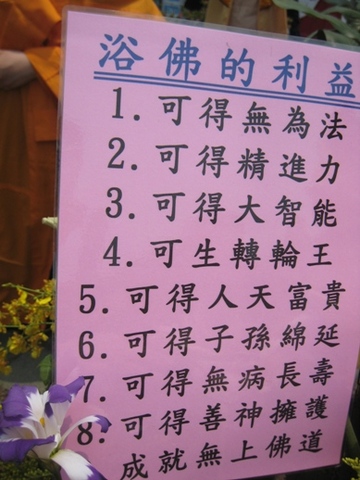 浴佛的利益
1.可得無為法
2.可得精進力
3.可得大智能
4.可生轉輪王
5.可得人天富貴
6.可得子孫綿延
7.可得無病長壽
8.可得善神擁護
成就無上佛道